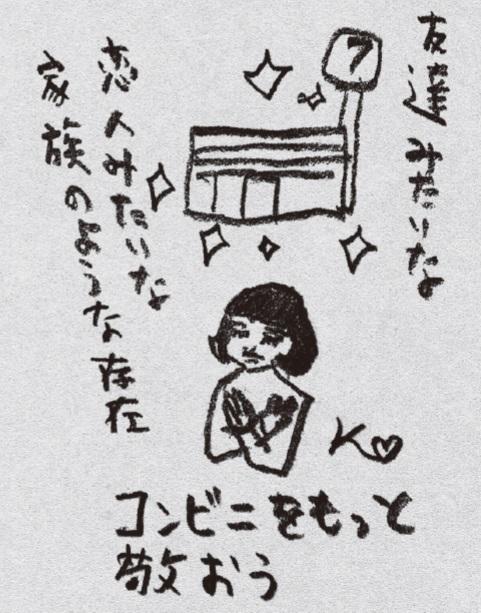 友達みたいな
恋人みたいな
家族のような存在
7
K♡
コンビニをもっと
敬おう